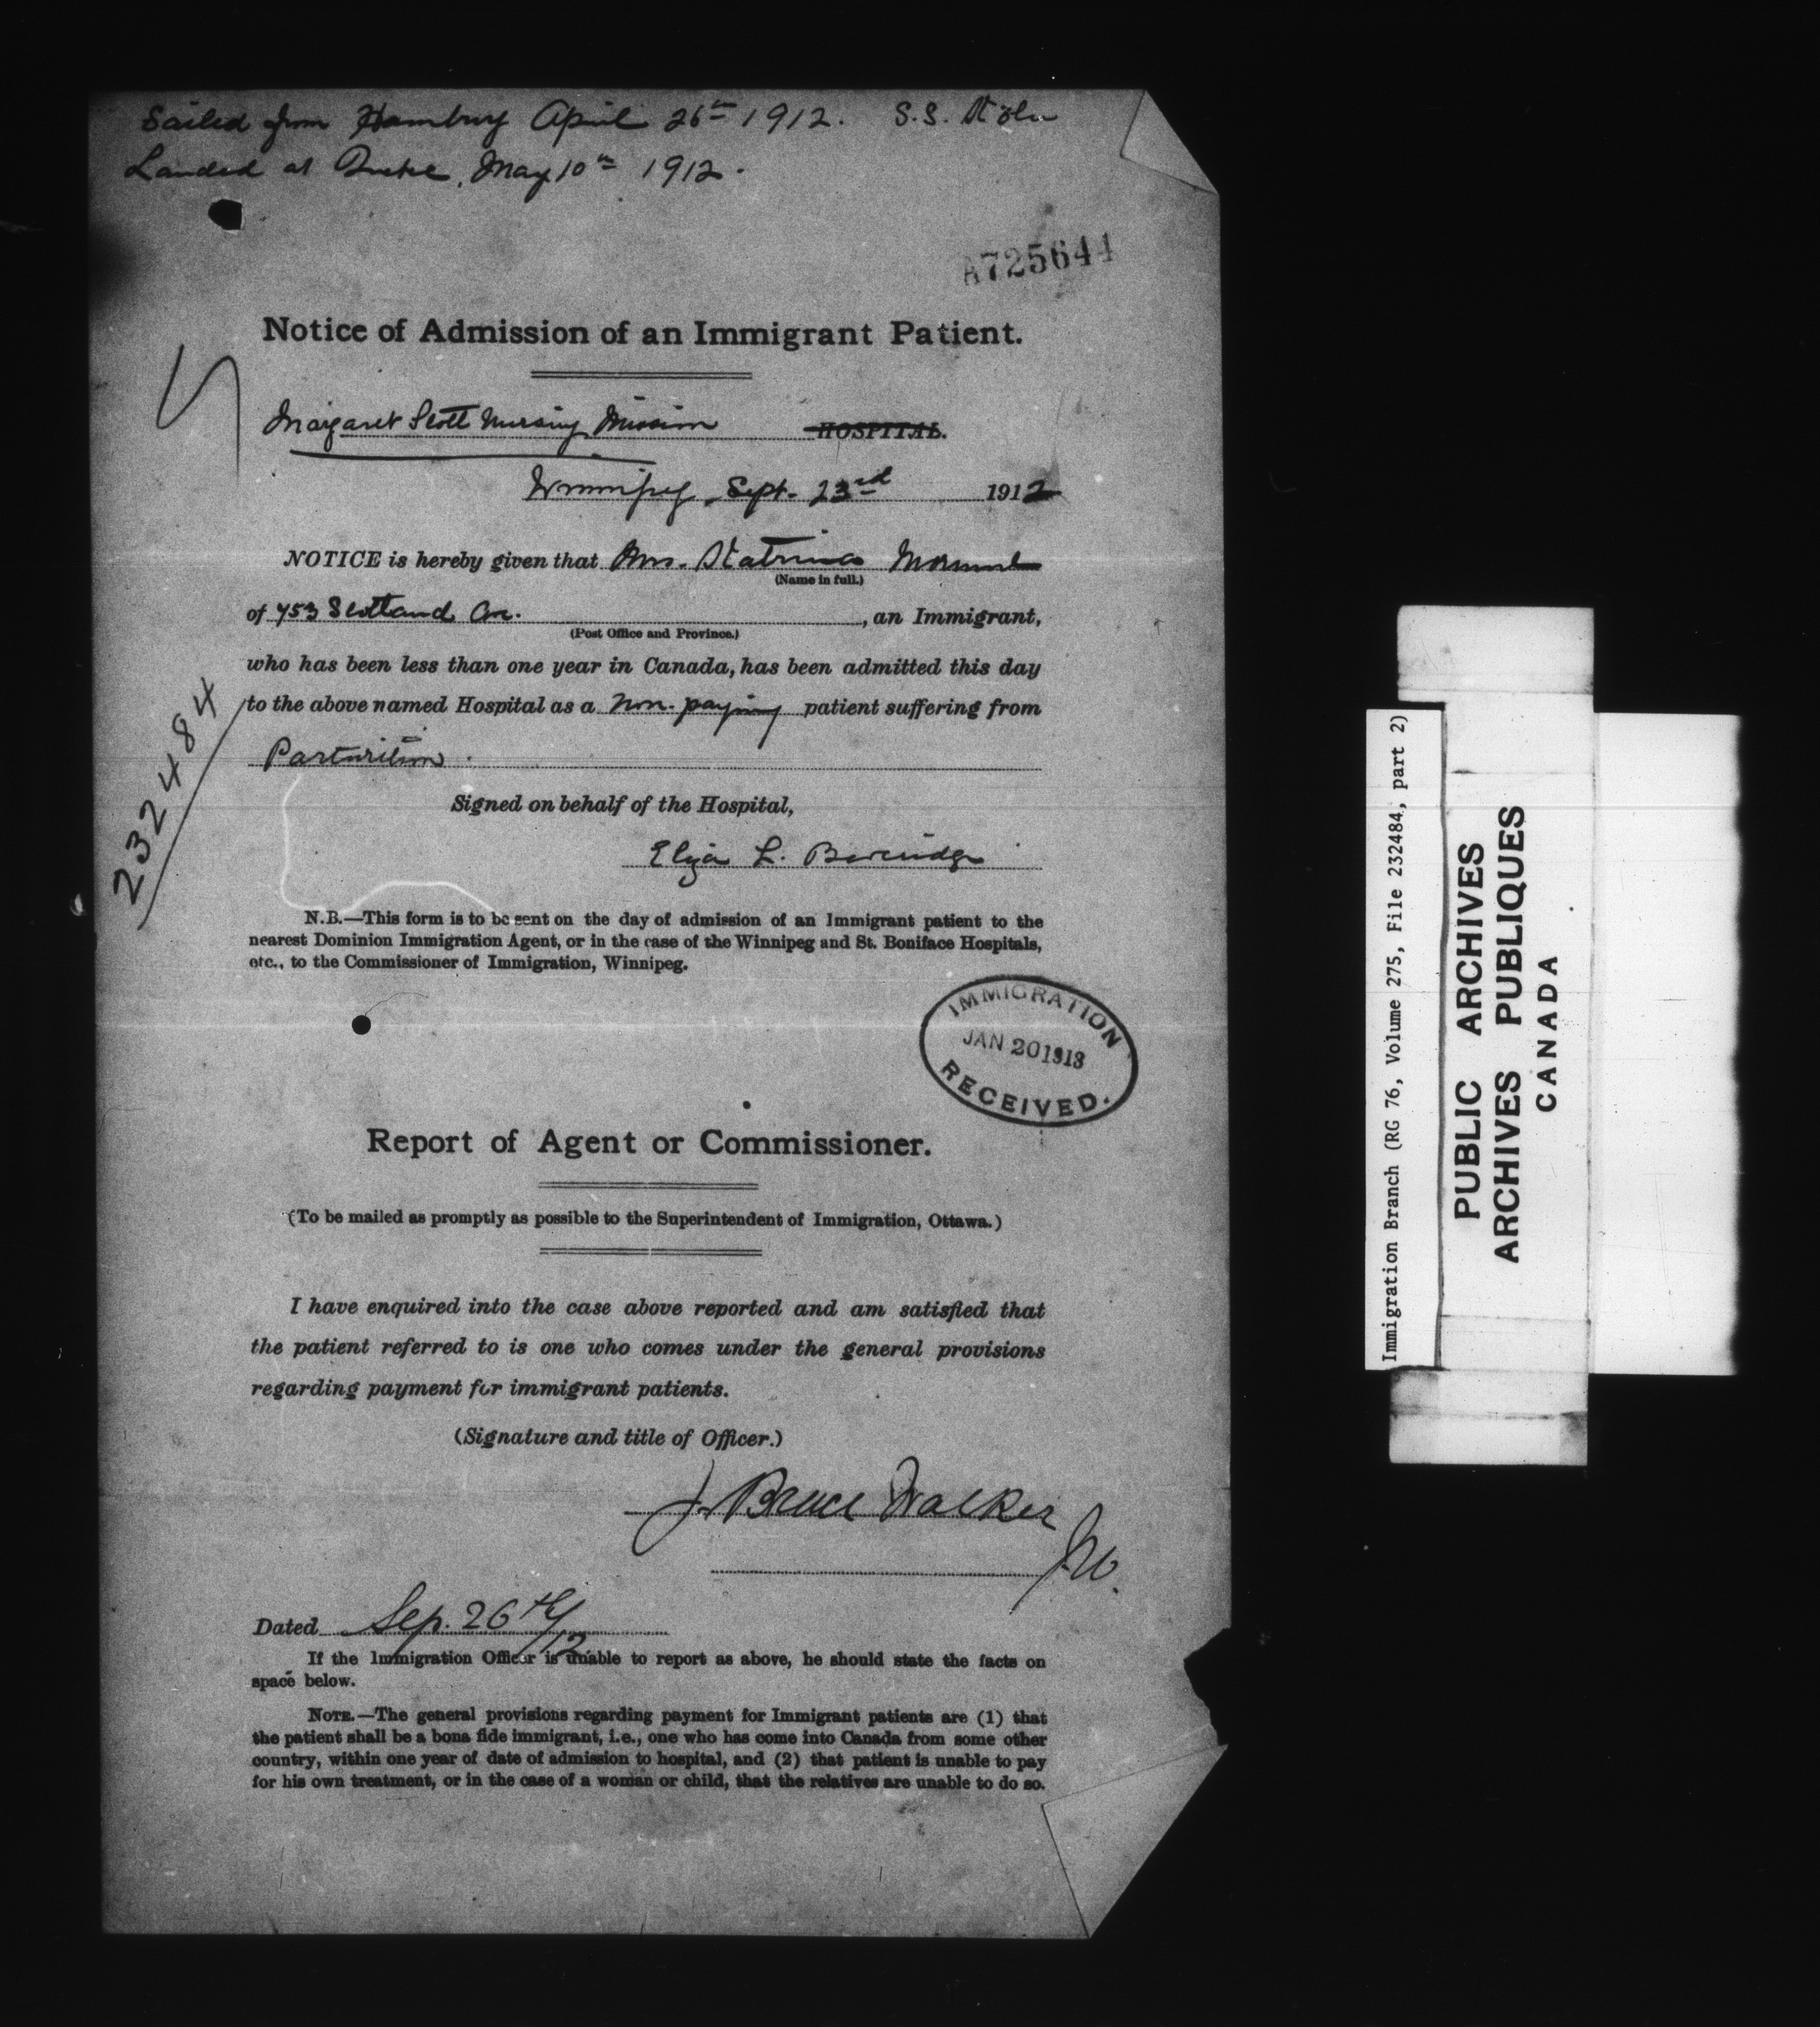 Sailed from Hamburg April 26th 1912. S.S. Köln
Landed at Quebec, May 10th 1912.
A725644
Notice of Admission of an Immigrant Patient.
Margaret Scott Nursing Mission HOSPITAL.
Winnipeg, Sept. 23rd 1912
NOTICE is hereby given that Mrs. Katrina
(Name in full.)
of 753 Scotland Ave. , an Immigrant,
(Post Office and Province.)
who has been less than one year in Canada, has been admitted this day
to the above named Hospital as a non-paying patient suffering from
Parturition.
232484
Signed on behalf of the Hospital,
Eliza L. Beveridge
N.B.—This form is to be sent on the day of admission of an Immigrant patient to the
nearest Dominion Immigration Agent, or in the case of the Winnipeg and St. Boniface Hospitals,
etc., to the Commissioner of Immigration, Winnipeg.
IMMIGRATION
JAN 20 1913
RECEIVED.
Report of Agent or Commissioner.
(To be mailed as promptly as possible to the Superintendent of Immigration, Ottawa.)
I have enquired into the case above reported and am satisfied that
the patient referred to is one who comes under the general provisions
regarding payment for immigrant patients.
(Signature and title of Officer.)
J. Bruce Walker
Dated Sep. 26th/12
If the Immigration Officer is unable to report as above, he should state the facts on
space below.
NOTE.—The general provisions regarding payment for Immigrant patients are (1) that
the patient shall be a bona fide immigrant, i.e., one who has come into Canada from some other
country, within one year of date of admission to hospital, and (2) that patient is unable to pay
for his own treatment, or in the case of a woman or child, that the relatives are unable to do so.
Immigration Branch (RG 76, Volume 275, File 232484, part 2)
PUBLIC ARCHIVES
ARCHIVES PUBLIQUES
CANADA